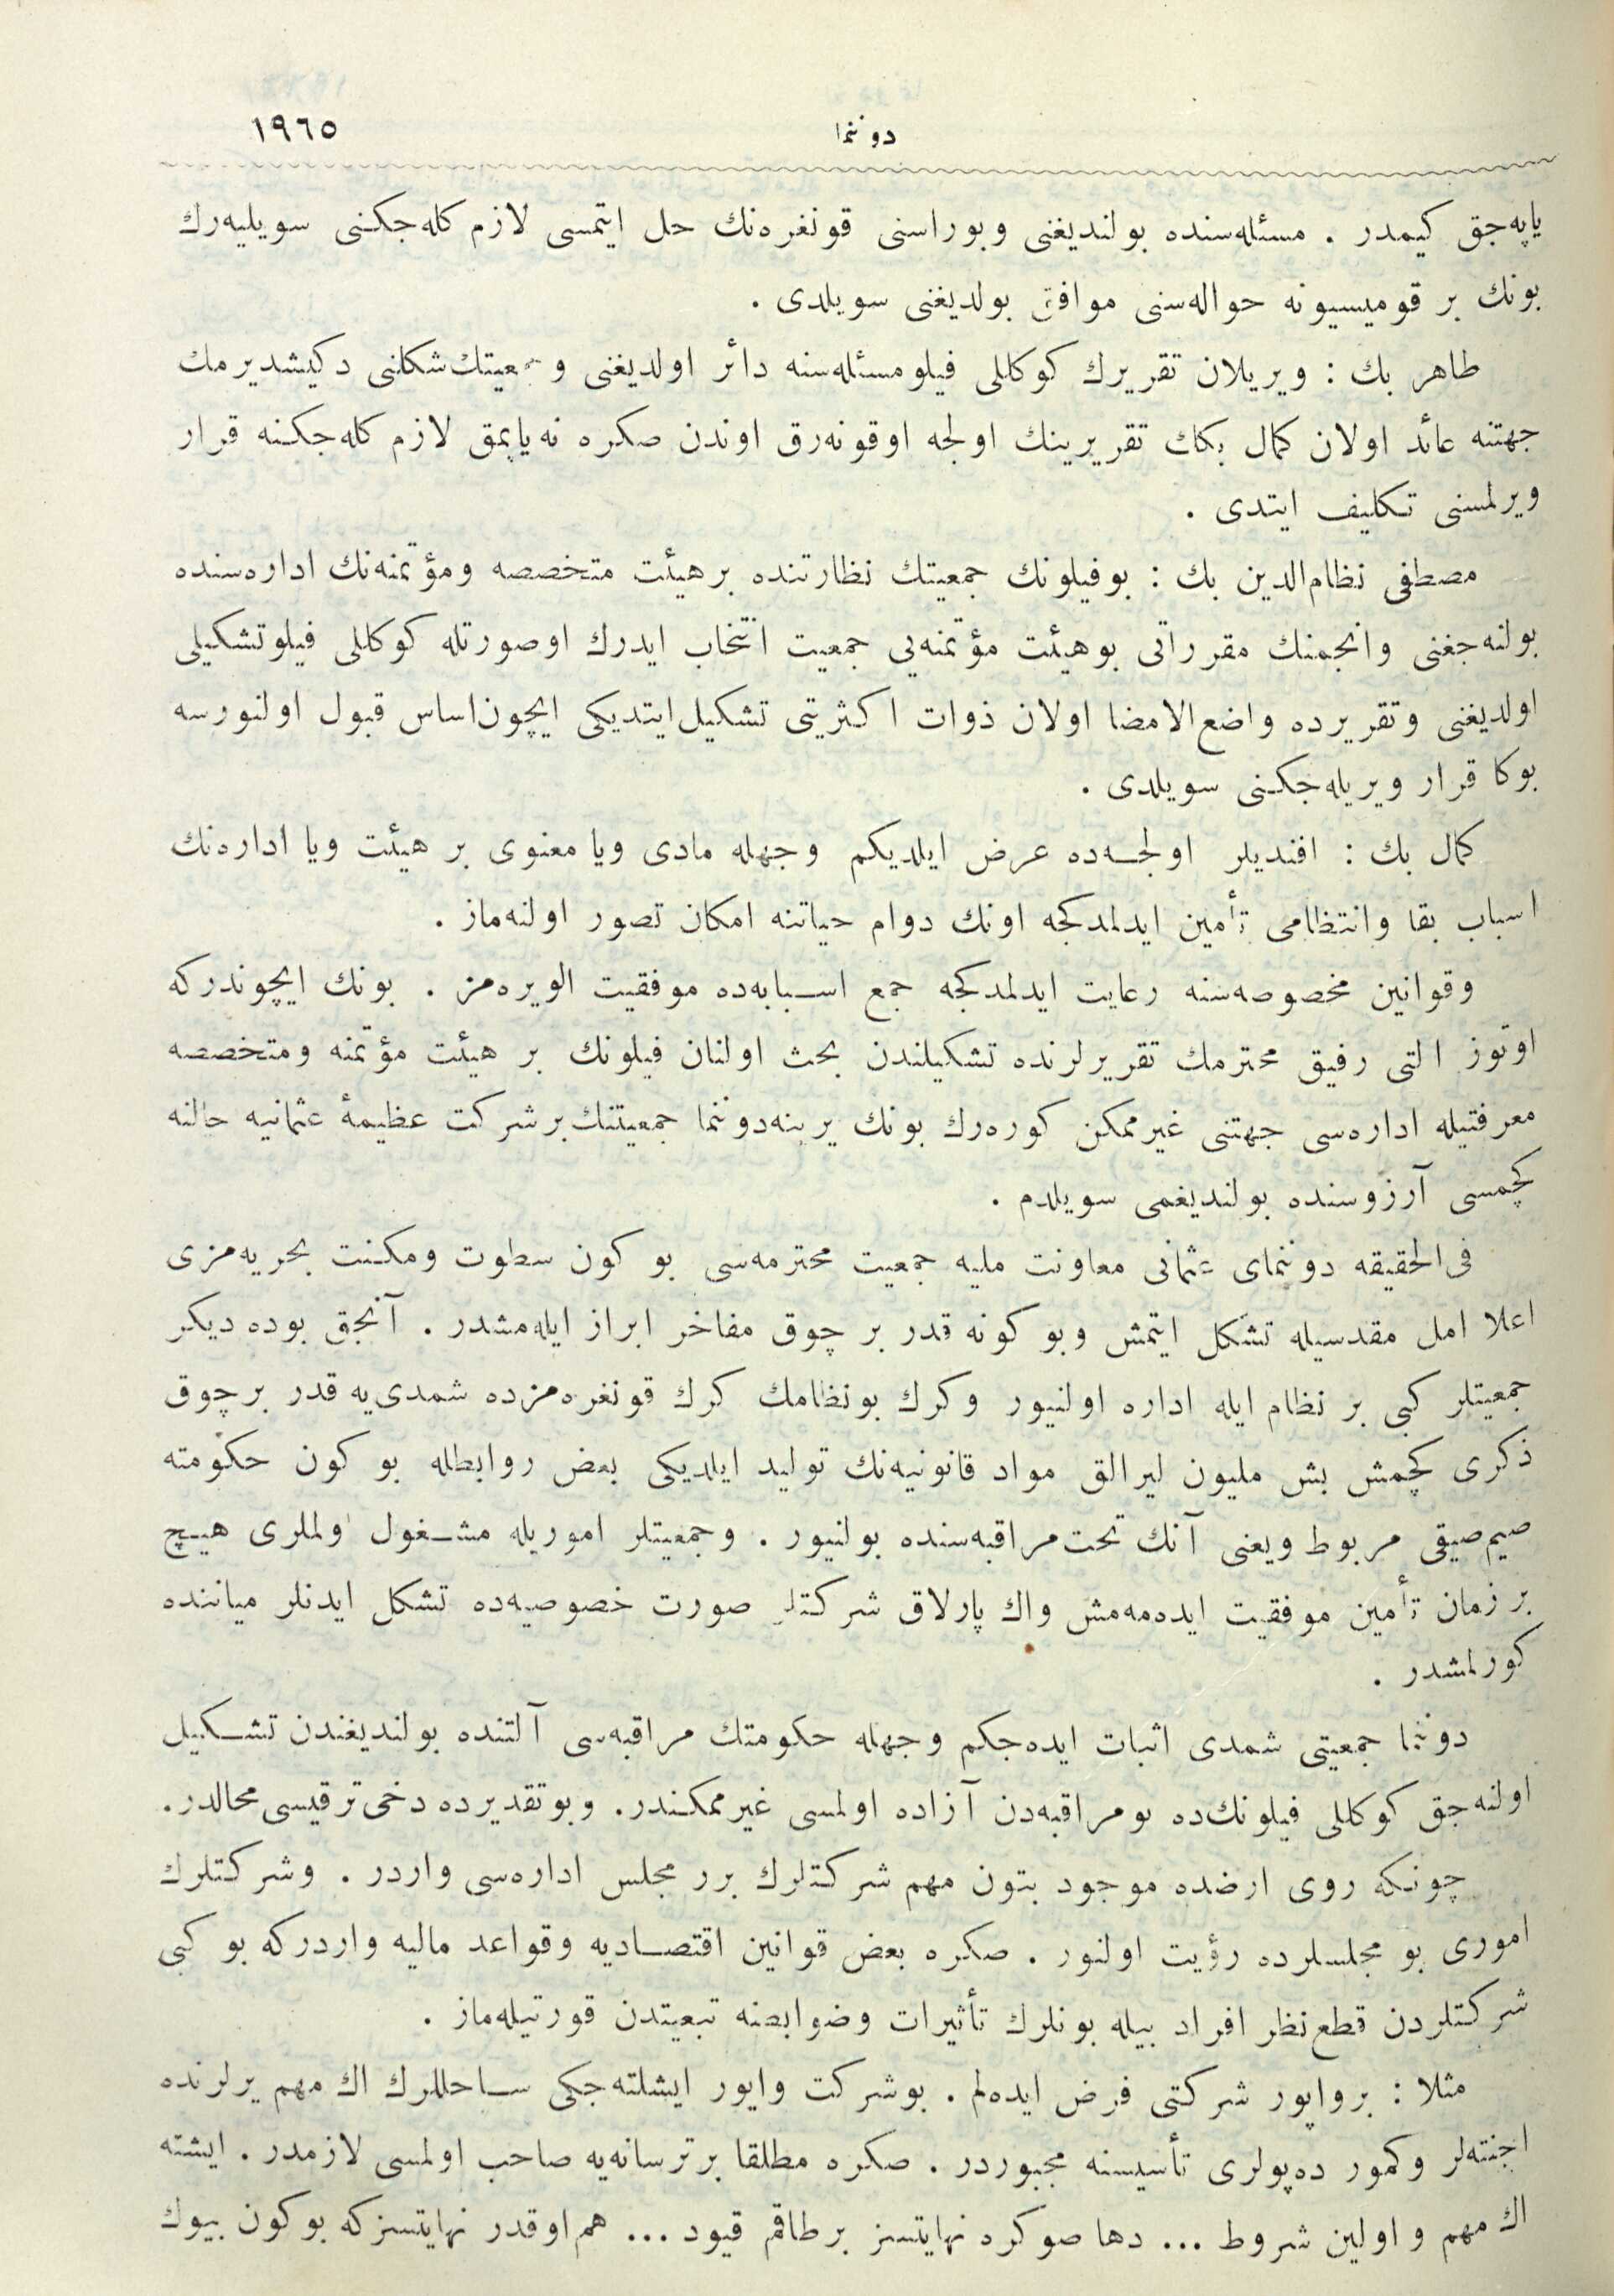 دوننما
١٩٦٥
ياپه‌جق كيمدر . مسئله‌سنده بولنديغنى وبوراسنى قونغره‌نك حل ايتمسى لازم كله‌جكنى سويليه‌رك
بونك بر قوميسيونه حواله‌سنى موافق بولديغنى سويلدى .
طاهر بك : ويريلان تقريرك كوكللى فيلو مسئله‌سنه دائر اولديغنى و جمعيتك شكلنى دكيشديرمك
جهتنه عائد اولان كمال بكك تقريرينك اولجه اوقونه‌رق اوندن صكره نه ياپمق لازم كله‌جكنه قرار
ويرلمسنى تكليف ايتدى .
مصطفى نظام‌الدين بك : بوفيلونك جمعيتك نظارتنده برهيئت متخصصه ومؤتمنه‌نك اداره‌سنده
بولنه‌جغنى وانجمنك مقرراتى بوهيئت مؤتمنه‌يى جمعيت انتخاب ايدرك اوصورتله كوكللى فيلوتشكيلى
اولديغنى وتقريرده واضع‌الامضا اولان ذوات اكثريتى تشكيل‌ايتديكى ايچون‌اساس قبول اولنورسه
بوكا قرار ويريله‌جكنى سويلدى .
كمال بك : افنديلر اولجــه‌ده عرض ايلديكم وجهله مادى ويا معنوى بر هيئت ويا اداره‌نك
اسباب بقا وانتظامى تأمين ايدلمدكجه اونك دوام حياتنه امكان تصور اولنه‌ماز .
وقوانين مخصوصه‌سنه رعايت ايدلمدكجه جمع اســبابه‌ده موفقيت الويره‌مز . بونك ايچوندركه
اوتوز التى رفيق محترمك تقريرلرنده تشكيلندن بحث اولنان فيلونك بر هيئت مؤتمنه ومتخصصه
معرفتيله اداره‌سى جهتنى غيرممكن كوره‌رك بونك يرينه‌دوننما جمعيتنك برشركت عظيمۀ عثمانيه حالنه
كچمسى آرزوسنده بولنديغمى سويلدم .
فى‌الحقيقه دوننماى عثمانى معاونت مليه جمعيت محترمه‌سى بو كون سطوت ومكـنت بحريه‌مزى
اعلا امل مقدسيله تشكل ايتمش وبو كونه قدر بر چوق مفاخر ابراز ايله‌مشدر . آنجق بوده ديكر
جمعيتلر كبى بر نظام ايله اداره اولنيور وكرك بونظامك كرك قونغره‌مزده شمدى‌يه قدر برچوق
ذكرى كچمش بش مليون ليرالق مواد قانونيه‌نك توليد ايلديكى بعض روابطله بو كون حكومته
صيم‌صيقى مربوط ويعنى آنك تحت‌مراقبه‌سنده بولنيور . وجمعيتلر اموريله مشــغول اولملرى هيــچ
بر زمان تأمين موفقيت ايده‌مه‌مش واك پارلاق شركتلر صورت خصوصيه‌ده تشكل ايدنلر مياننده
كورلمشدر .
دوننما جمعيتى شمدى اثبات ايده‌جكم وجهله حكومتك مراقبه‌سى آلتنده بولنديغندن تشــكيل
اولنه‌جق كوكللى فيلونك‌ده بومراقبه‌دن آزاده اولمسى غيرممكندر. وبوتقديرده دخى‌ترقيسى‌محالدر.
چونكه روى ارضده موجود بتون مهم شركتلرك برر مجلس اداره‌سى واردر . وشركتلرك
امورى بو مجلسلرده رؤيت اولنور . صكره بعض قوانين اقتصــاديه وقواعد ماليه واردركه بو كبى
شركتلردن قطع‌نظر افراد بيله بونلرك تأثيرات وضوابطنه تبعيتدن قورتيله‌ماز .
مثلا : برواپور شركتى فرض ايده‌لم . بوشركت واپور ايشلته‌جكى ســاحللرك اك مهم يرلرنده
اجنته‌لر وكمور ده‌پولرى تأسيسنه مجبوردر . صكره مطلقا برترسانه‌يه صاحب اولمسى لازمدر . ايشته
اك مهم و اولين شروط ... دها صوكره نهايتسز برطاقم قيود ... هم‌اوقدر نهايتسزكه بوكون بيوك